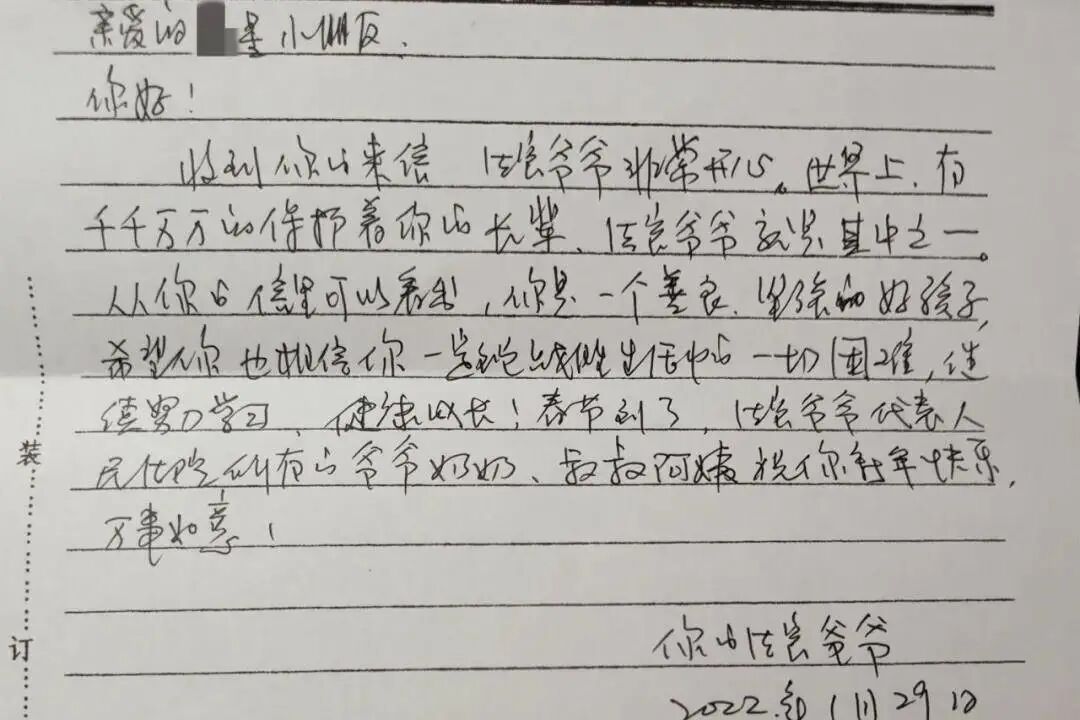 亲爱的星小朋友.
你好!
收到你的来信 法官爷爷非常开心。世界上、有
千千万万的保护着你的长辈、法官爷爷就是其中之一。
从你的信里可以看出,你是一个善良、坚强的好孩子,
希望你也相信你一定能战胜生活中的一切困难,继
续努力学习、健康成长!春节到了,法官爷爷代表人
民法院所有的爷爷奶奶、叔叔阿姨祝你新年快乐,
万事如意!
你的法官爷爷
2022年1月29日
装
订